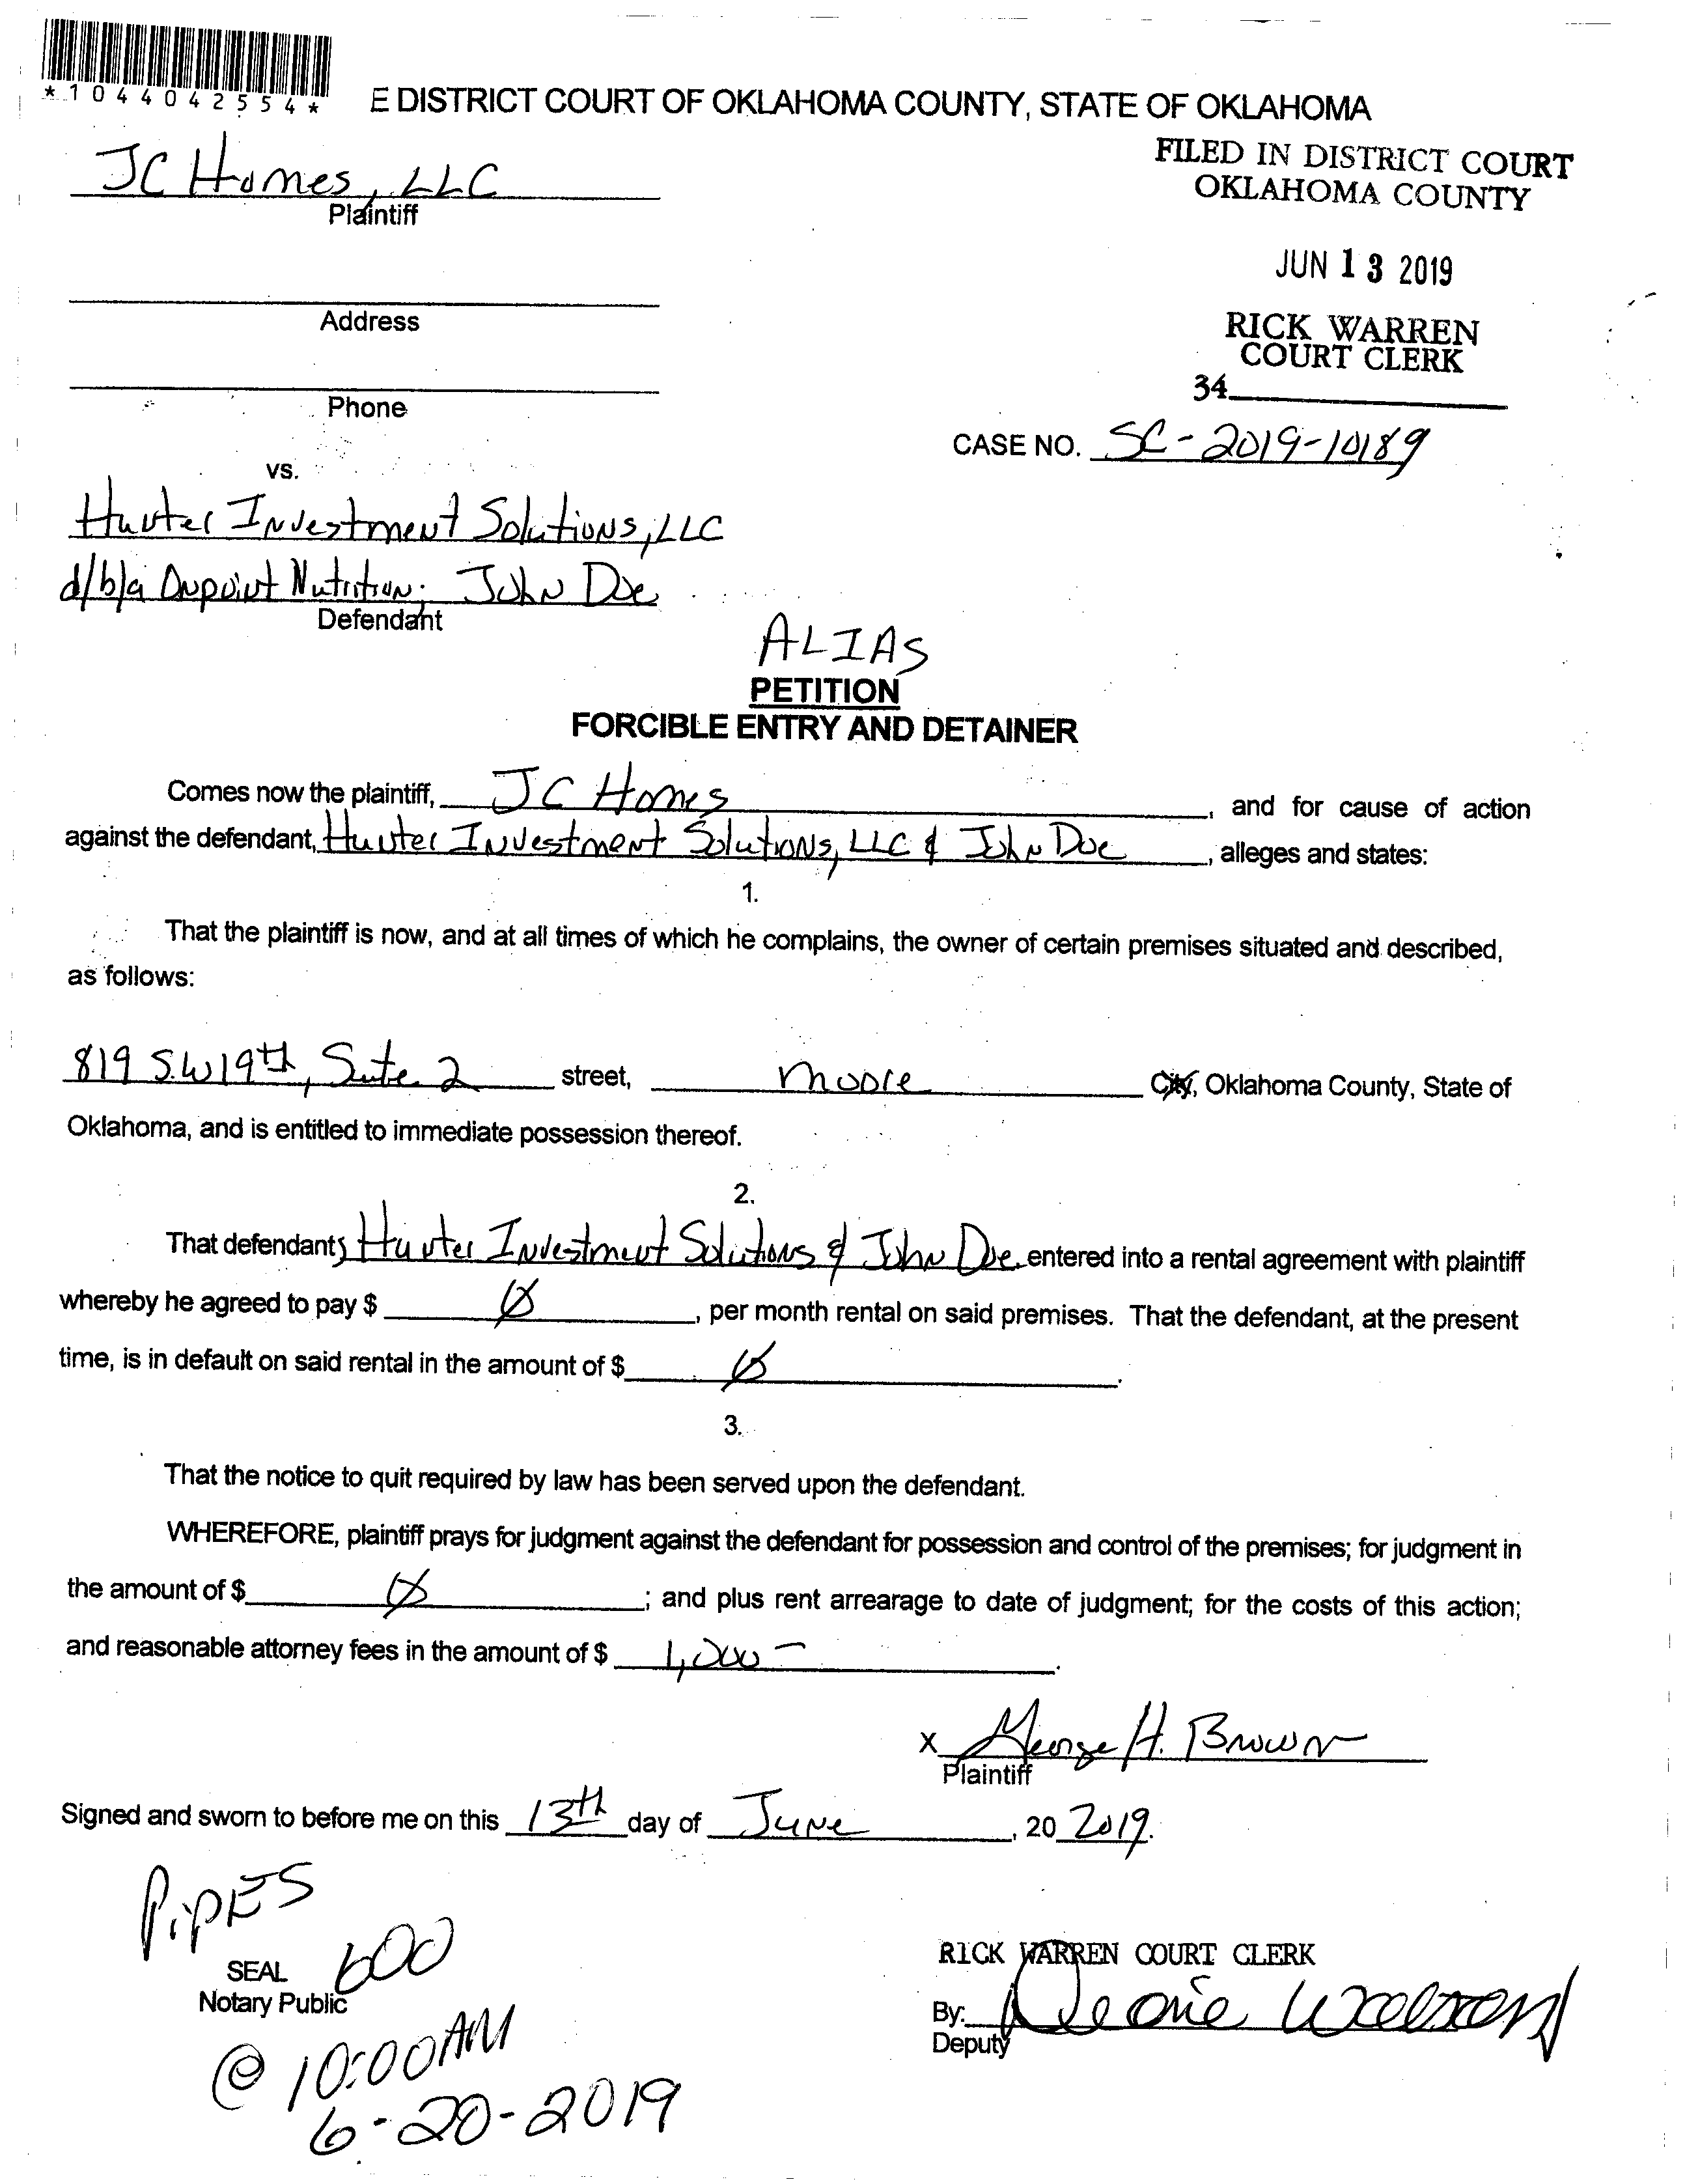 *1044042554*
E DISTRICT COURT OF OKLAHOMA COUNTY, STATE OF OKLAHOMA
JC Homes, LLC
Plaintiff
FILED IN DISTRICT COURT
OKLAHOMA COUNTY
JUN 13 2019
RICK WARREN
COURT CLERK
34
Address
Phone
CASE NO. SC-2019-10189
vs.
Hunter Investment Solutions, LLC
d/b/a Onpoint Nutrition; John Doe
Defendant
ALIAS
PETITION
FORCIBLE ENTRY AND DETAINER
Comes now the plaintiff, JC Homes, and for cause of action
against the defendant, Hunter Investment Solutions, LLC & John Doe, alleges and states:
1.
That the plaintiff is now, and at all times of which he complains, the owner of certain premises situated and described,
as follows:
819 S.W 19th, Suite 2 street, Moore City, Oklahoma County, State of
Oklahoma, and is entitled to immediate possession thereof.
2.
That defendants Hunter Investment Solutions & John Doe, entered into a rental agreement with plaintiff
whereby he agreed to pay $ Ø, per month rental on said premises. That the defendant, at the present
time, is in default on said rental in the amount of $ Ø.
3.
That the notice to quit required by law has been served upon the defendant.
WHEREFORE, plaintiff prays for judgment against the defendant for possession and control of the premises; for judgment in
the amount of $ Ø; and plus rent arrearage to date of judgment; for the costs of this action;
and reasonable attorney fees in the amount of $ 1,000 -.
X George H. Brown
Plaintiff
Signed and sworn to before me on this 13th day of June, 20 2019.
PIPES
600
SEAL
Notary Public
@ 10:00 AM
6-20-2019
RICK WARREN COURT CLERK
By:
Deputy